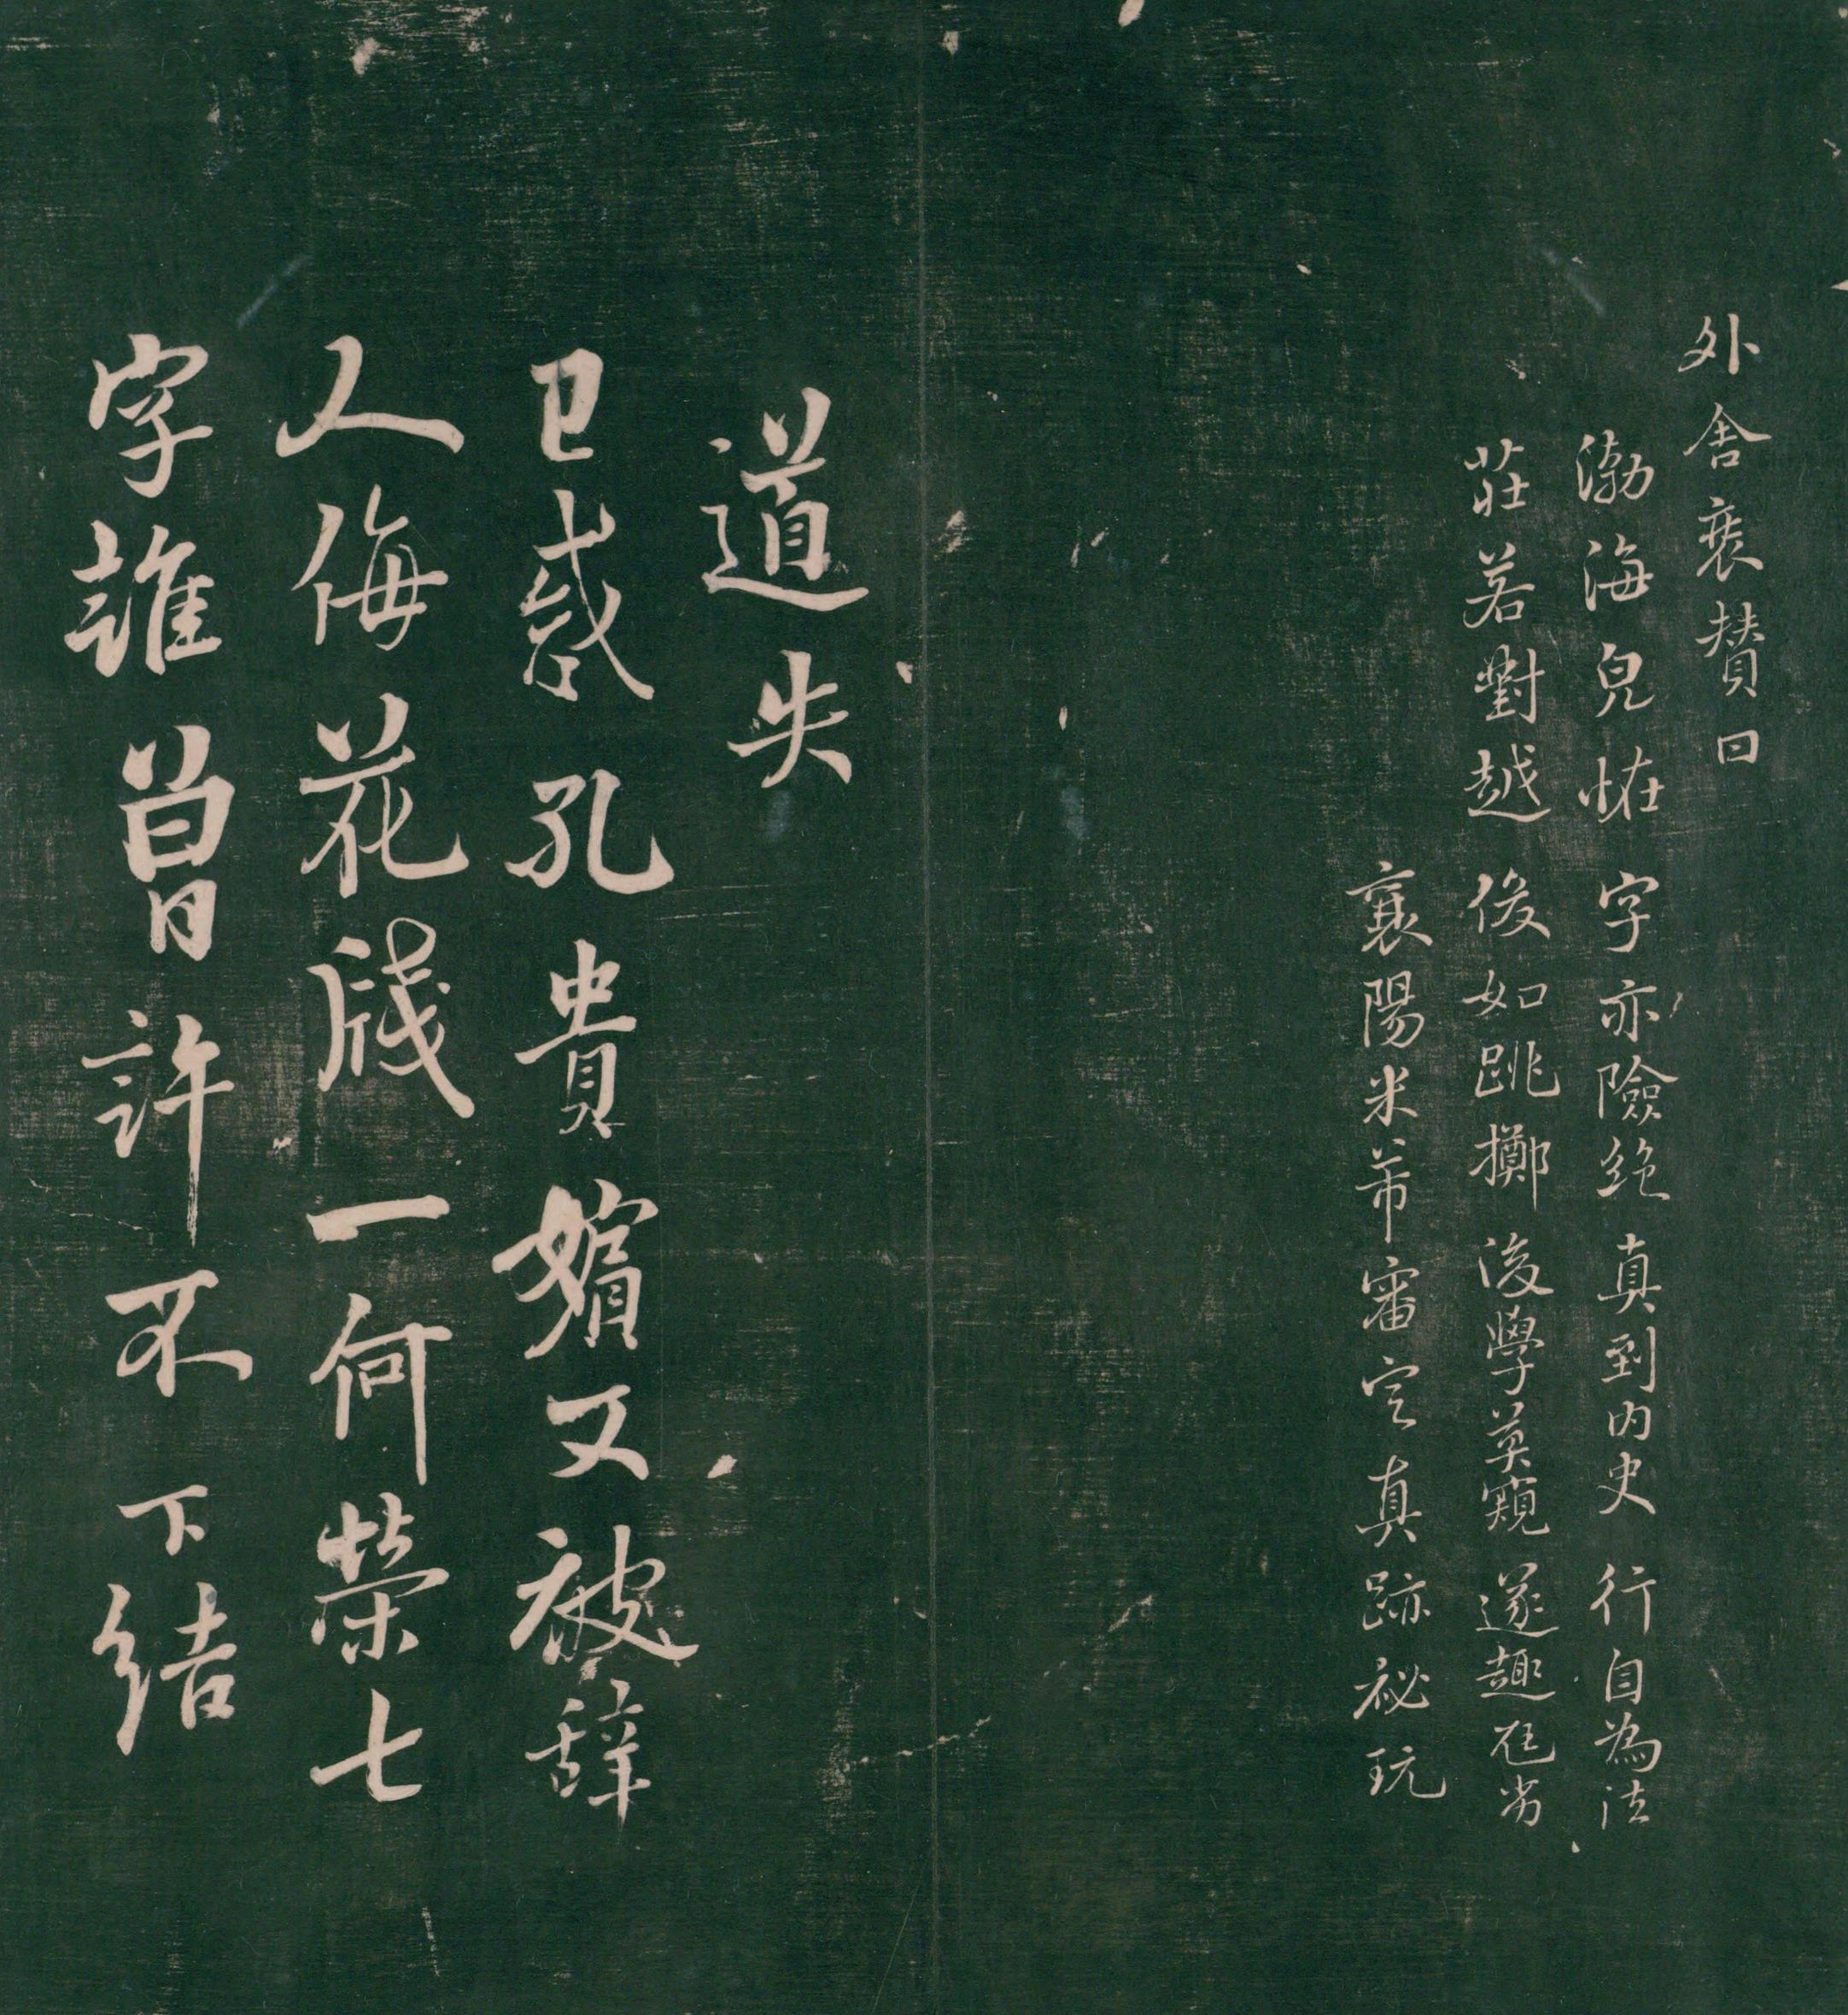 外舍襄贊曰
渤海皃恠 字亦險絶 真到内史 行自為法
莊若對越 俊如跳擲 後學莫窺 遂趣尫劣
襄陽米芾審定真跡祕玩
道失
已惑孔貴嬪又被辭
人侮花牋一何榮七
字誰曾許不下結